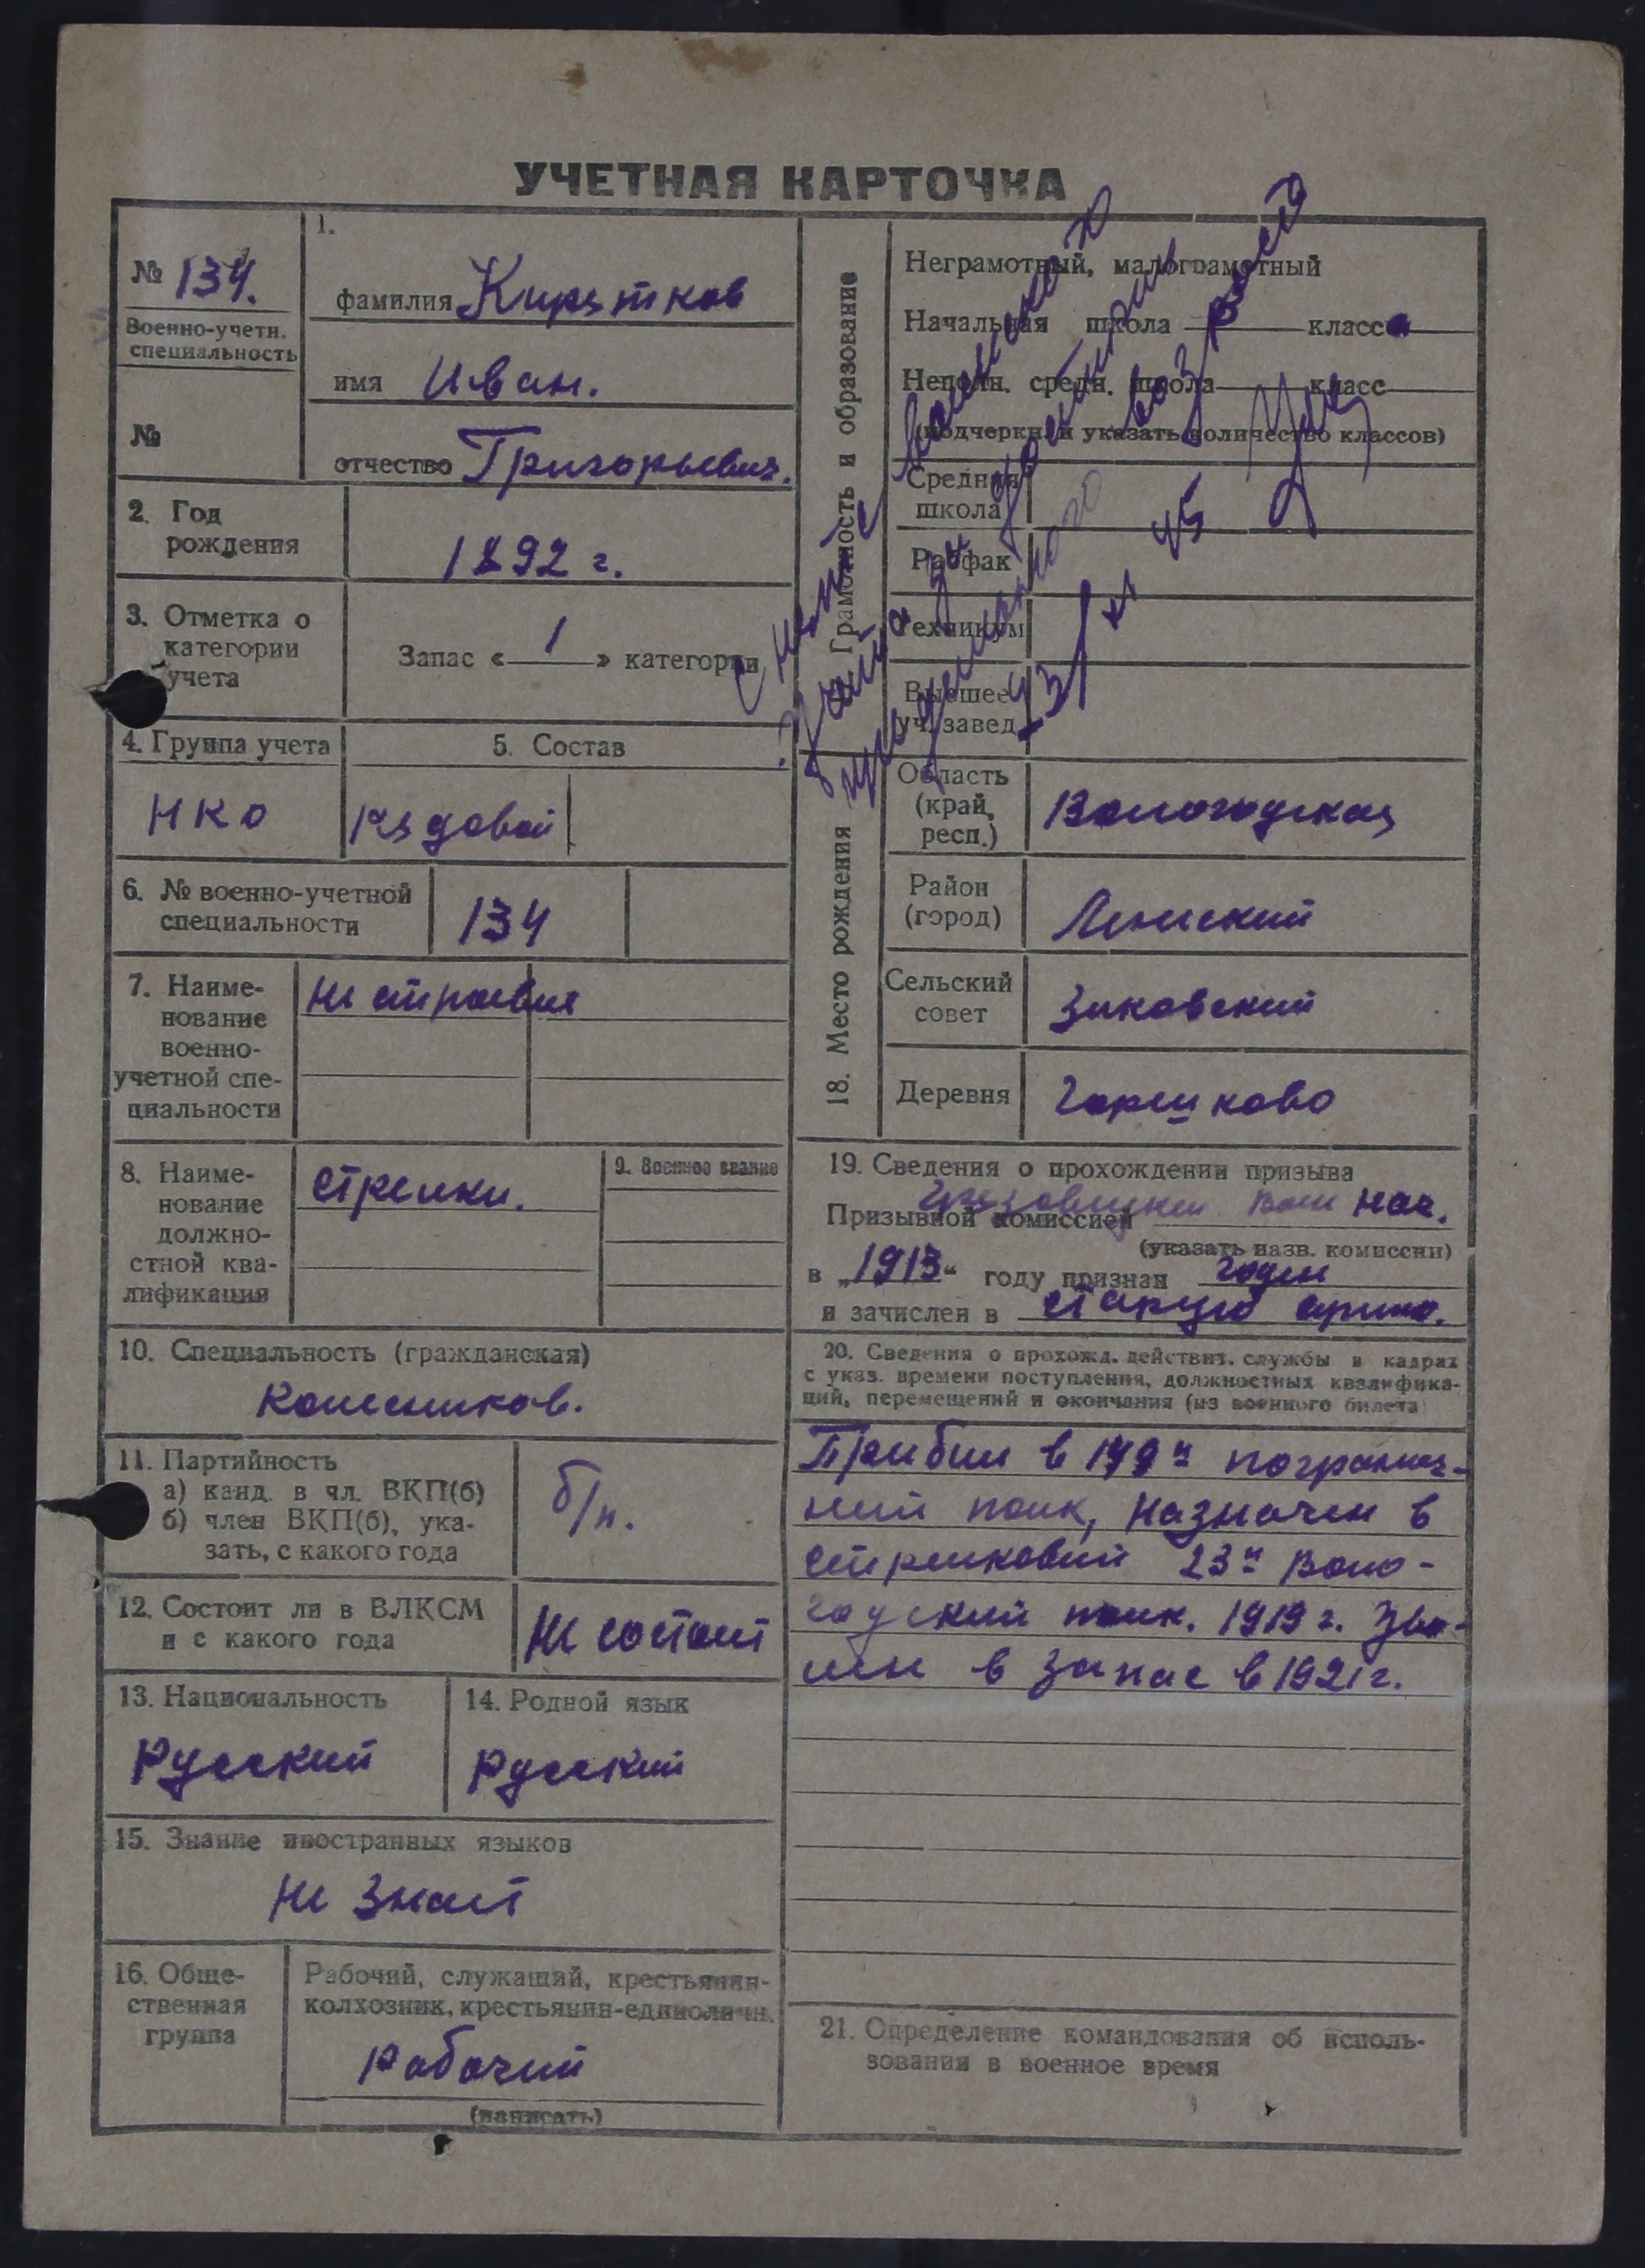 УЧЕТНАЯ КАРТОЧКА
№ 134.
Военно-учетн.
специальность
№
1.
фамилия Кирятков
имя Иван.
отчество Григорьевич.
2. Год
рождения
1892 г.
3. Отметка о
категории
учета
Запас « 1 » категории
4. Группа учета
НКО
5. Состав
Рядовой
6. № военно-учетной
специальности
134
7. Наиме-
нование
военно-
учетной спе-
циальности
Не строевые
8. Наиме-
нование
должно-
стной ква-
лификации
Стрелки.
9. Военное звание
10. Специальность (гражданская)
11. Партийность
а) канд. в чл. ВКП(б)
б) член ВКП(б), ука-
зать, с какого года
б/п.
12. Состоит ли в ВЛКСМ
и с какого года
Не состоит
13. Национальность
Русский
14. Родной язык
Русский
15. Знание иностранных языков
Не знает
16. Обще-
ственная
группа
Рабочий, служащий, крестьянин-
колхозник, крестьянин-единоличн.
Рабочий
(написать)
Грамотность и образование
Неграмотный, малограмотный
Начальная школа класс
Неполн. средн. школа класс
(подчеркн. и указать количество классов)
Средняя
школа
Рабфак
Техникум
Высшее
уч. завед.
возраста
45
18. Место рождения
Область
(край,
респ.)
Вологодская
Район
(город)
Ленский
Сельский
совет
Деревня
Горшково
19. Сведения о прохождении призыва
Призывной комиссией нач.
(указать назв. комиссии)
в „1913“ году признан годен
и зачислен в старую армию.
20. Сведения о прохожд. действит. службы в кадрах
с указ. времени поступления, должностных квалифика-
ций, перемещений и окончания (из военного билета)
Прибыл в 199й погранич-
ный полк, назначен в
стрелковый 23й Воло-
годский полк. 1919 г. Уво-
лен в запас в 1921 г.
21. Определение командования об исполь-
зовании в военное время